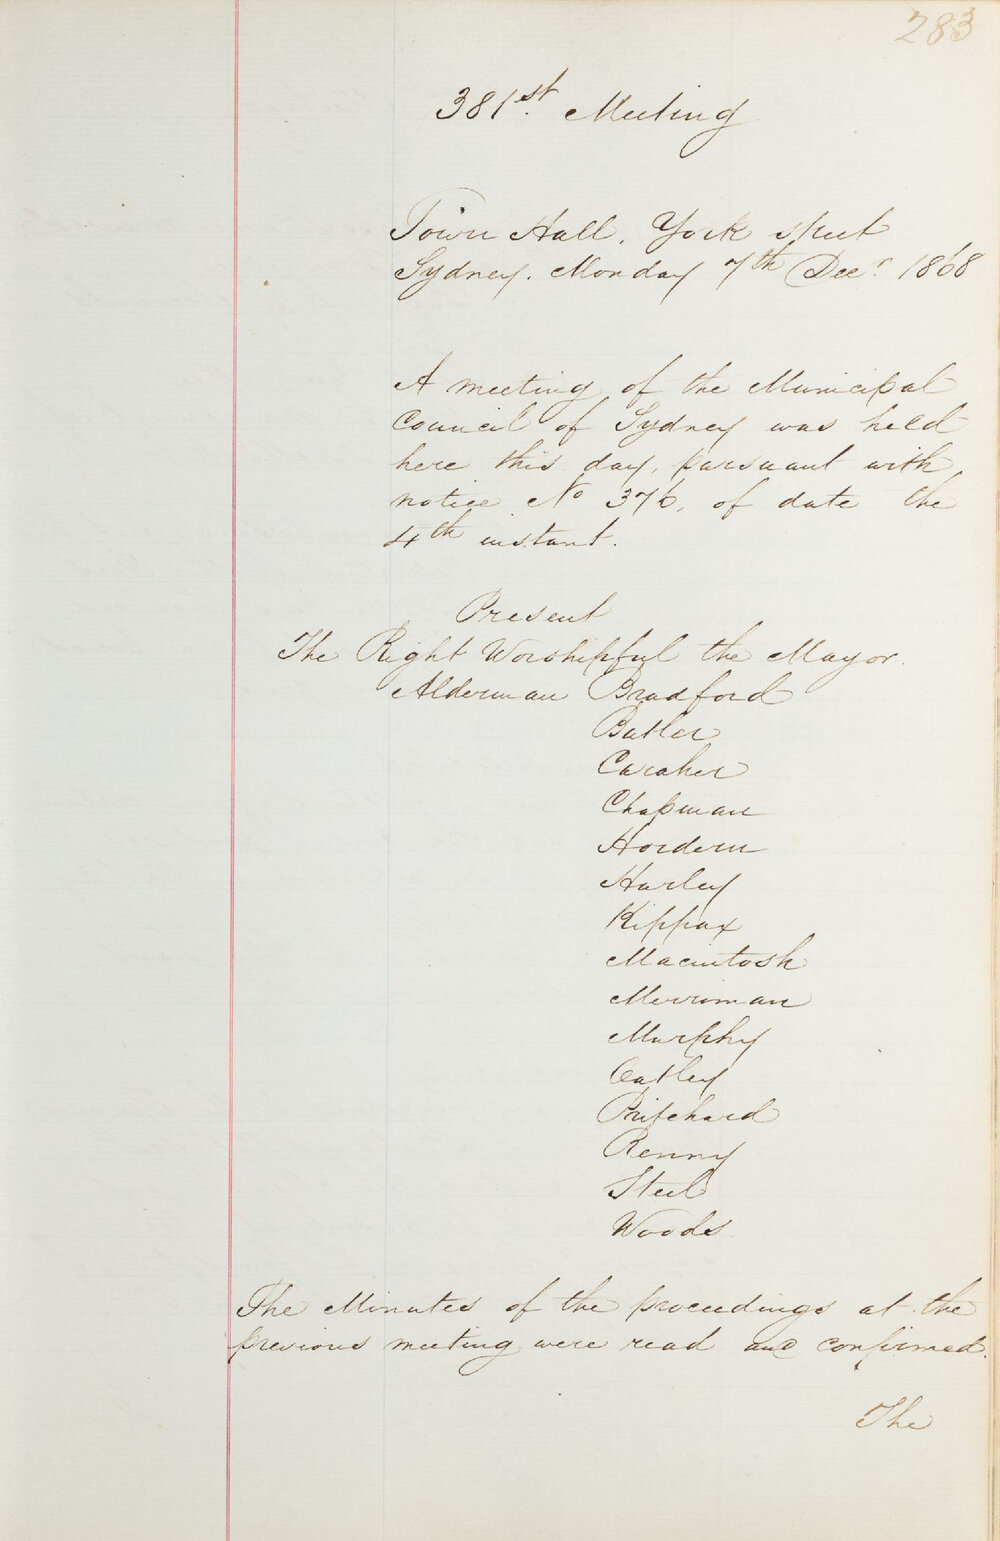 283
381st. Meeting
Town Hall, York street
Sydney. Monday 7th Decr. 1868
A meeting of the Municipal
Council of Sydney was held
here this day, pursuant with
notice No 376, of date the
4th instant.
Present
The Right Worshipful the Mayor.
Alderman Bradford
Butler
Caraher
Chapman
Hordern
Hurley
Kippax
Macintosh
Merriman
Murphy
Oatley
Pritchard
Renny
Steel
Woods.
The Minutes of the proceedings at the
previous meeting were read and confirmed.
The